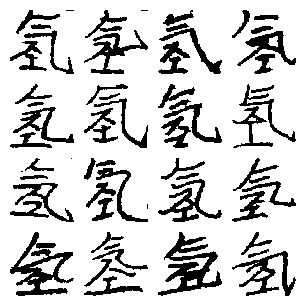 氢氢氢氢
氢氢氢氢
氢氢氢氢
氢氢氢氢